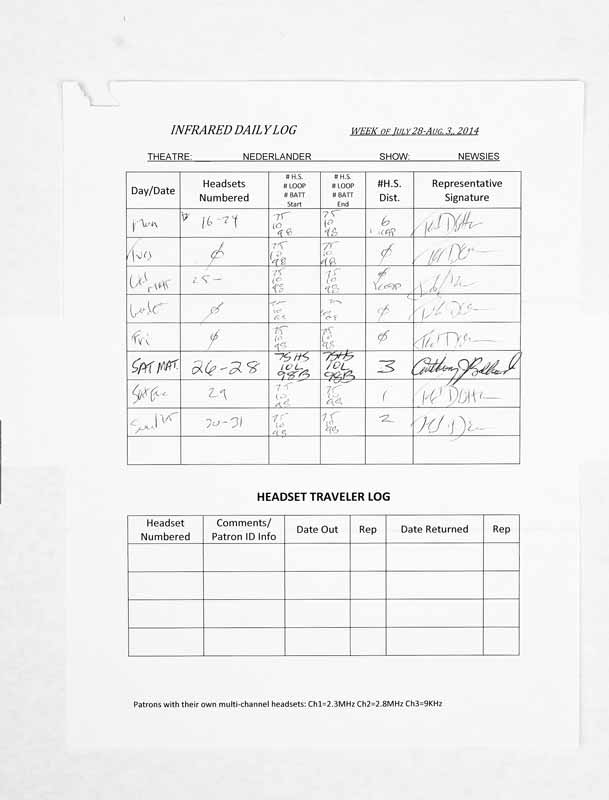 INFRARED DAILY LOG WEEK OF JULY 28-AUG. 3, 2014
THEATRE: NEDERLANDER SHOW: NEWSIES
Day/Date Headsets Numbered # H.S. # LOOP # BATT Start # H.S. # LOOP # BATT End #H.S. Dist. Representative Signature
Mon 16-24 75 10 98 75 10 98 6
Tues ϕ 75 10 98 75 10 98 ϕ
MAT 25- 75 10 98 75 10 98 ϕ
ϕ 75 10 98 ϕ
Fri ϕ 75 10 98 75 10 98 ϕ
SAT MAT. 26-28 75HS 10L 98B 75HS 10L 98B 3
Sat Eve 29 75 10 98 75 10 98 1
-31 75 10 98 75 10 98 2
HEADSET TRAVELER LOG
Headset Numbered Comments/ Patron ID Info Date Out Rep Date Returned Rep
Patrons with their own multi-channel headsets: Ch1=2.3MHz Ch2=2.8MHz Ch3=9KHz